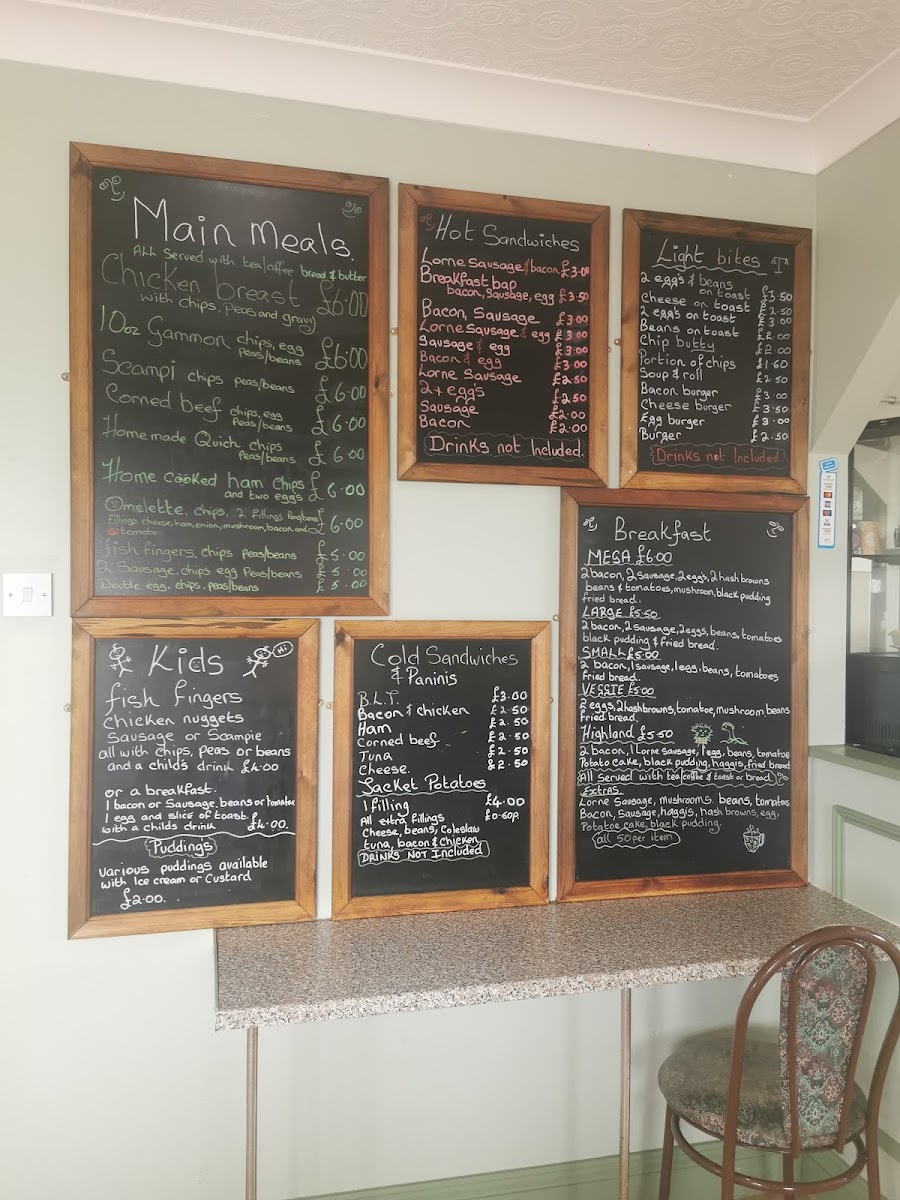 Main Meals.
All served with tea/coffee bread & butter
Chicken breast £6.00
with chips, Peas and gravy
10oz Gammon chips, egg £6.00
peas/beans
Scampi chips peas/beans £6.00
Corned beef chips, egg £6.00
Peas/beans
Homemade Quich chips £6.00
peas/beans
Home cooked ham chips £6.00
and two eggs
Omelette. chips, 2 fillings Peas/beans £6.00
fillings cheese, ham, onion, mushroom, bacon and
tomato
fish fingers, chips peas/beans £5.00
2 Sausage, chips egg Peas/beans £5.00
Double egg, chips, peas/beans £5.00
Hot Sandwiches
Lorne sausage & bacon £3.00
Breakfast bap
bacon, sausage, egg £3.50
Bacon, Sausage £3.00
Lorne sausage & egg £3.00
Sausage & egg £3.00
Bacon & egg £3.00
Lorne Sausage £2.50
2 + eggs £2.50
Sausage £2.00
Bacon £2.00
Drinks not Included.
Light bites
2 eggs & beans
on toast £3.50
Cheese on toast £2.50
2 eggs on toast £3.00
Beans on toast £2.00
Chip butty £2.00
Portion of chips £1.60
Soup & roll £2.50
Bacon burger £3.00
Cheese burger £3.50
Egg burger £3.00
Burger £2.50
Drinks not Included
Kids
Hi
fish fingers
chicken nuggets
Sausage or Scampie
all with chips, peas or beans
and a childs drink £4.00
or a breakfast.
1 bacon or Sausage, beans or tomatoe
1 egg and slice of toast.
with a childs drink £4.00.
Puddings
various puddings available
with Ice cream or Custard
£2.00.
Cold Sandwiches
& Paninis
B.L.T. £3.00
Bacon & chicken £2.50
Ham £2.50
Corned beef £2.50
Tuna £2.50
Cheese. £2.50
Jacket Potatoes
1 filling £4.00
All extra fillings £0.60p.
Cheese, beans, Coleslaw
tuna, bacon & chicken
DRINKS NOT INCLUDED
Breakfast
MEGA £6.00
2 bacon, 2 sausage, 2 eggs, 2 hash browns
beans & tomatoes, mushroom, black pudding
fried bread.
LARGE £5.50
2 bacon, 2 sausage, 2 eggs, beans, tomatoes
black pudding & fried bread.
SMALL £5.00
2 bacon, 1 sausage, 1 egg, beans, tomatoes
fried bread.
VEGGIE £5.00
2 eggs, 2 hashbrowns, tomatoe, mushroom, beans
fried bread.
Highland £5.50
2 bacon, 1 Lorne sausage, 1 egg, beans, tomatoes
Potato cake, black pudding, haggis, fried bread
All served with tea/coffee & toast or bread
EXTRAS
Lorne sausage, mushrooms, beans, tomatoes
Bacon, sausage, haggis, hash browns, egg,
Potatoe cake, black pudding.
all 50 per item